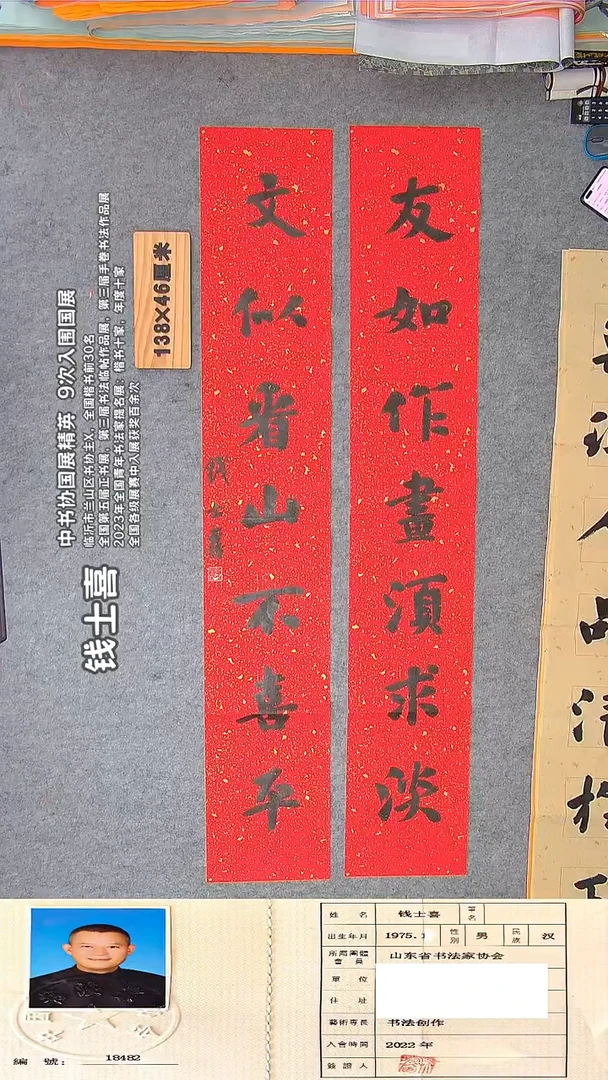 友如作畫須求淡
文似看山不喜平
钱士喜
138×46厘米
钱士喜
中书协国展精英 9次入围国展
临沂市兰山区书协主X，全国楷书前30名
全国第五届正书展，第三届书法临帖作品展，第三届手卷书法作品展
2023年全国青年书法家提名展：楷书十家，年度十家
全国各级展赛中入展获奖百余次
姓 名 钱士喜 筆名
出生年月 1975.1 性別 男 民族 汉
所屬團體會員 山东省书法家协会
單 位
住 址
藝術專長 书法创作
入會時間 2022 年
簽證人
編 號： 18482